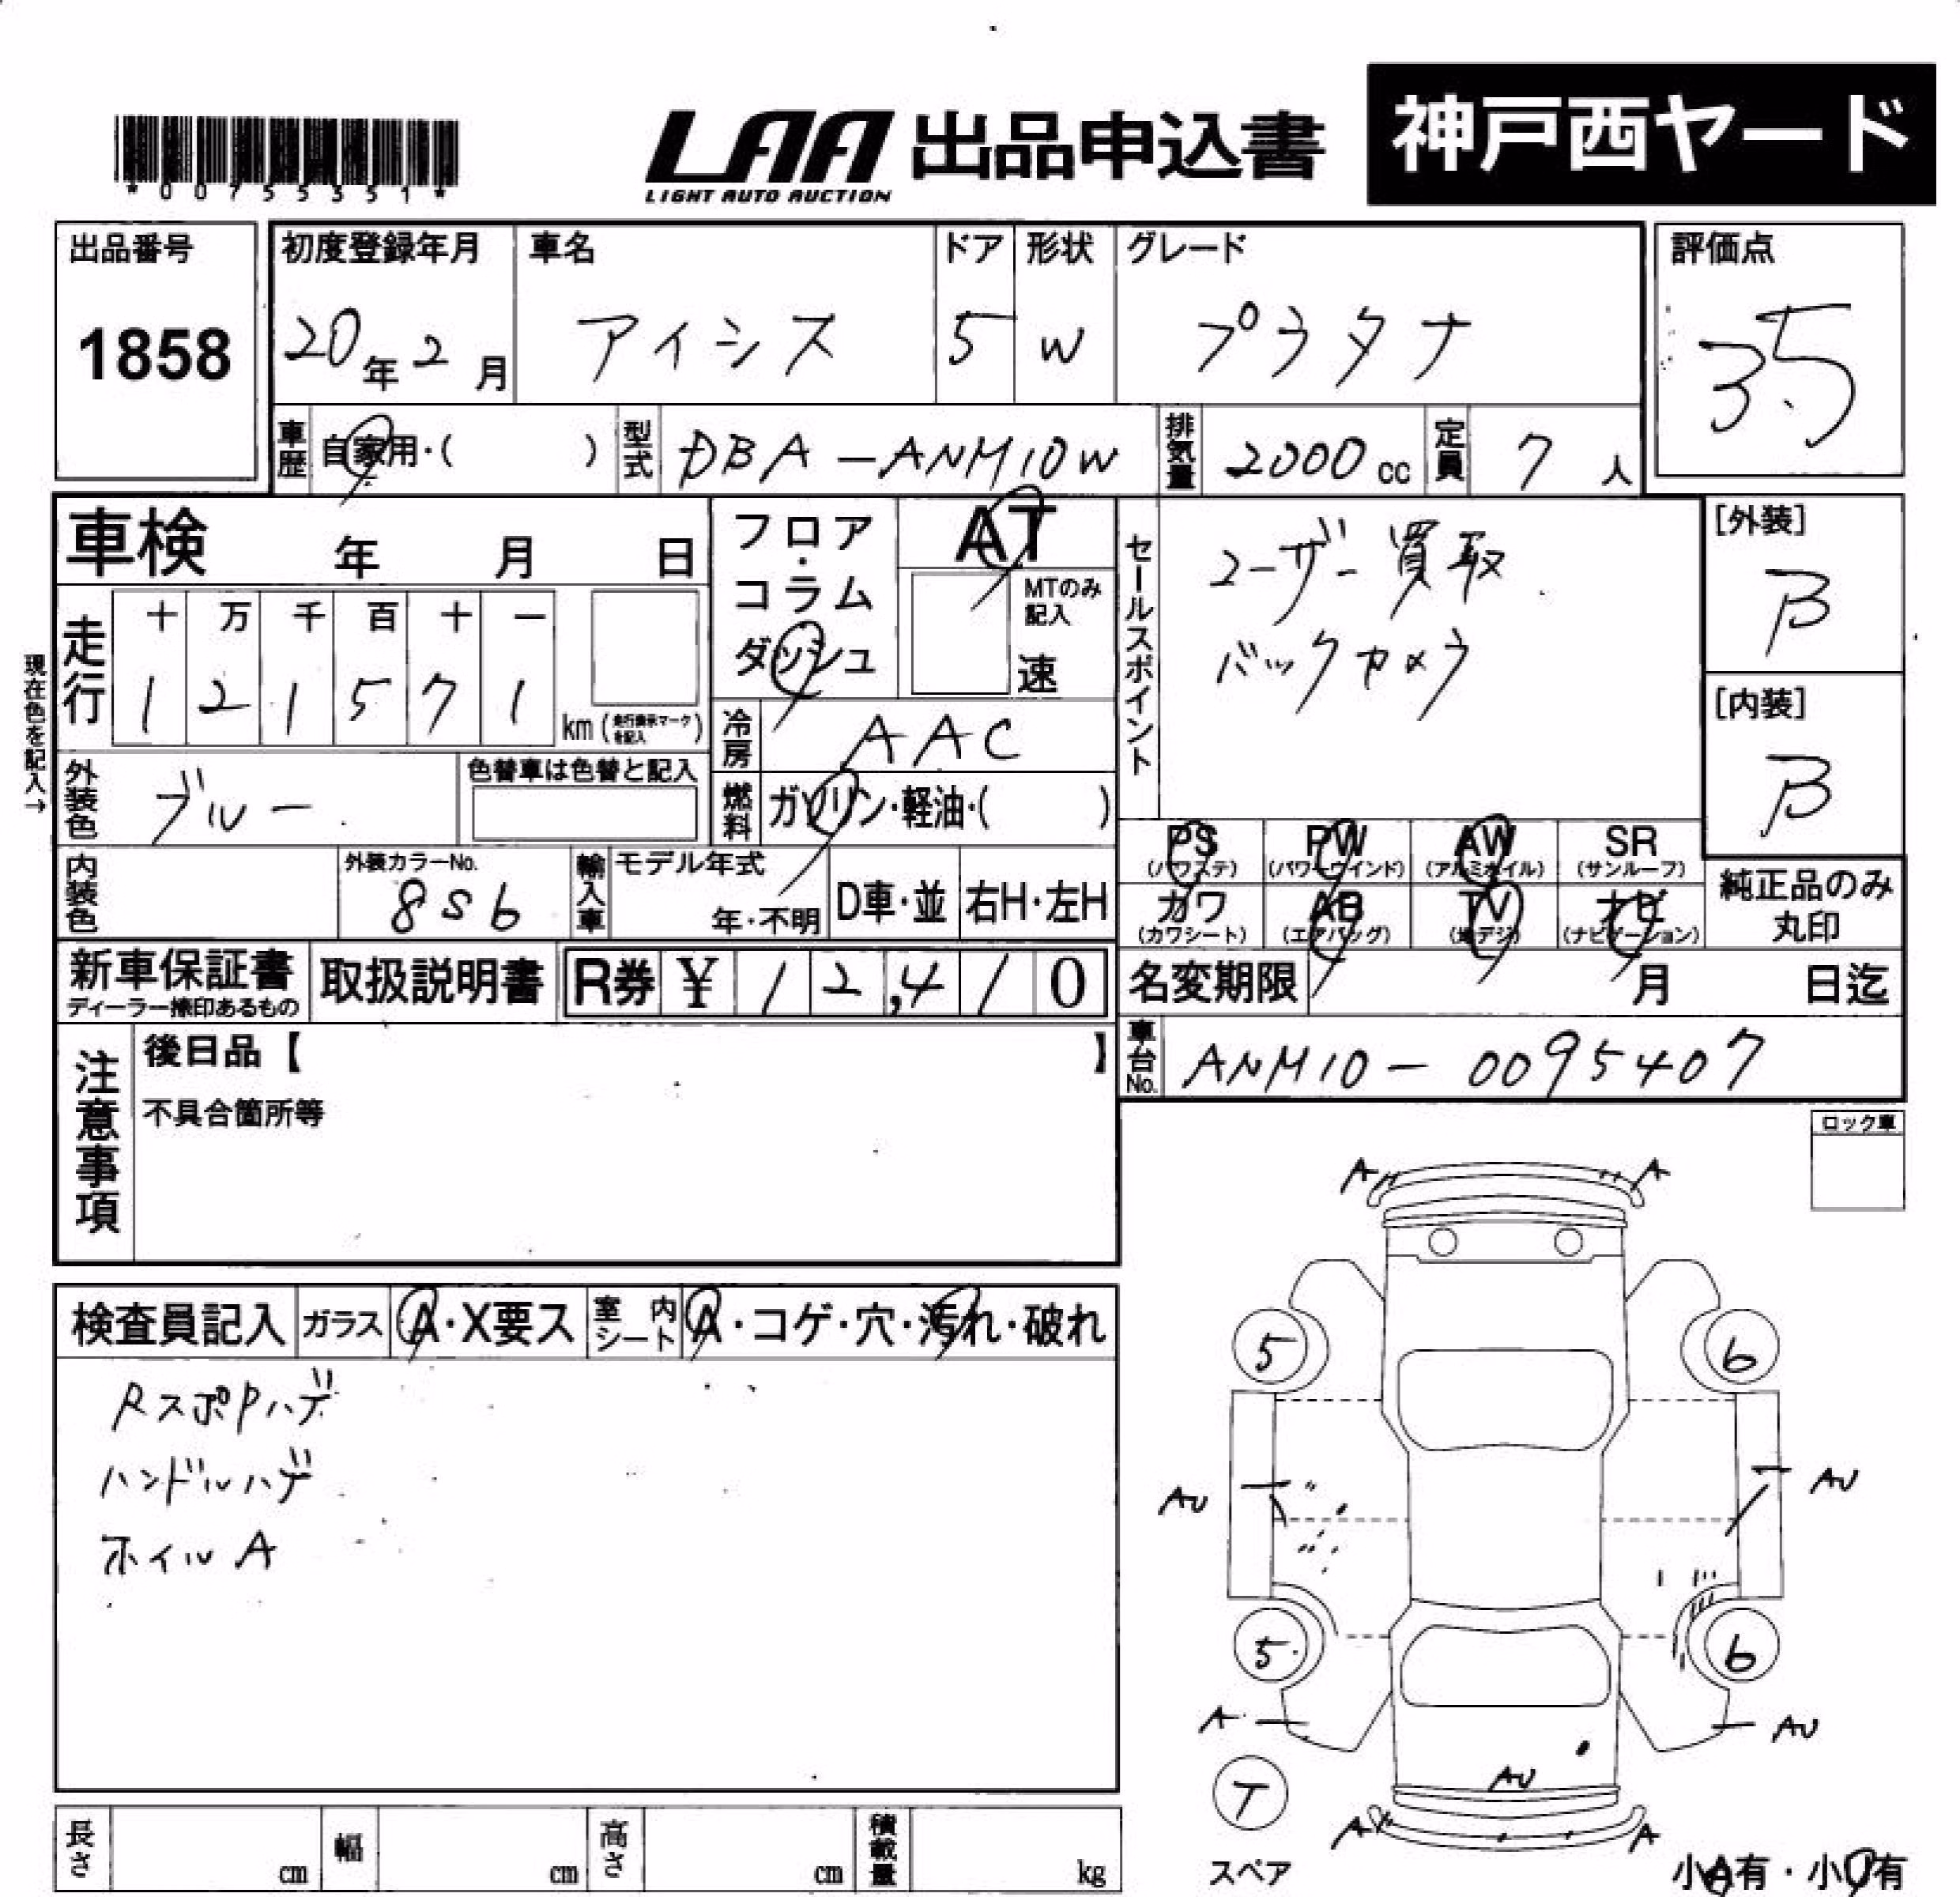 *00755351*
LAA 出品申込書 神戸西ヤード
LIGHT AUTO AUCTION
出品番号 初度登録年月 車名 ドア 形状 グレード 評価点
1858 20年2月 アイシス 5 W プラタナ 3.5
車歴 自家用・( ) 型式 DBA-ANM10W 排気量 2000cc 定員 7人
車検 年 月 日 フロア・コラム ダッシュ AT
MTのみ記入
速
セールスポイント ユーザー買取
バックカメラ
[外装]
B
[内装]
B
現在色を記入→
走行 十 万 千 百 十 一
1 2 1 5 7 1 km (走行表示マークを記入)
冷房 AAC
外装色 ブルー 色替車は色替と記入
燃料 ガソリン・軽油・( )
PS (パワステ) PW (パワーウインド) AW (アルミホイル) SR (サンルーフ)
カワ (カワシート) AB (エアバッグ) TV (地デジ) ナビ (ナビゲーション)
純正品のみ
丸印
内装色 外装カラーNo. 8S6 輸入車 モデル年式 年・不明 D車・並 右H・左H
新車保証書 ディーラー捺印あるもの 取扱説明書 R券 ¥ 12,410 名変期限 月 日迄
車台No. ANM10-0095407
注意事項 後日品【 】
不具合箇所等
ロック車
検査員記入 ガラス A・X要ス 室内シート A・コゲ・穴・汚れ・破れ
RスポPハゲ
ハンドルハゲ
ホイルA
A A
5 6
AU AU
5 6
A AU
T AU
A A
スペア
小A有・小U有
長さ cm 幅 cm 高さ cm 積載量 kg